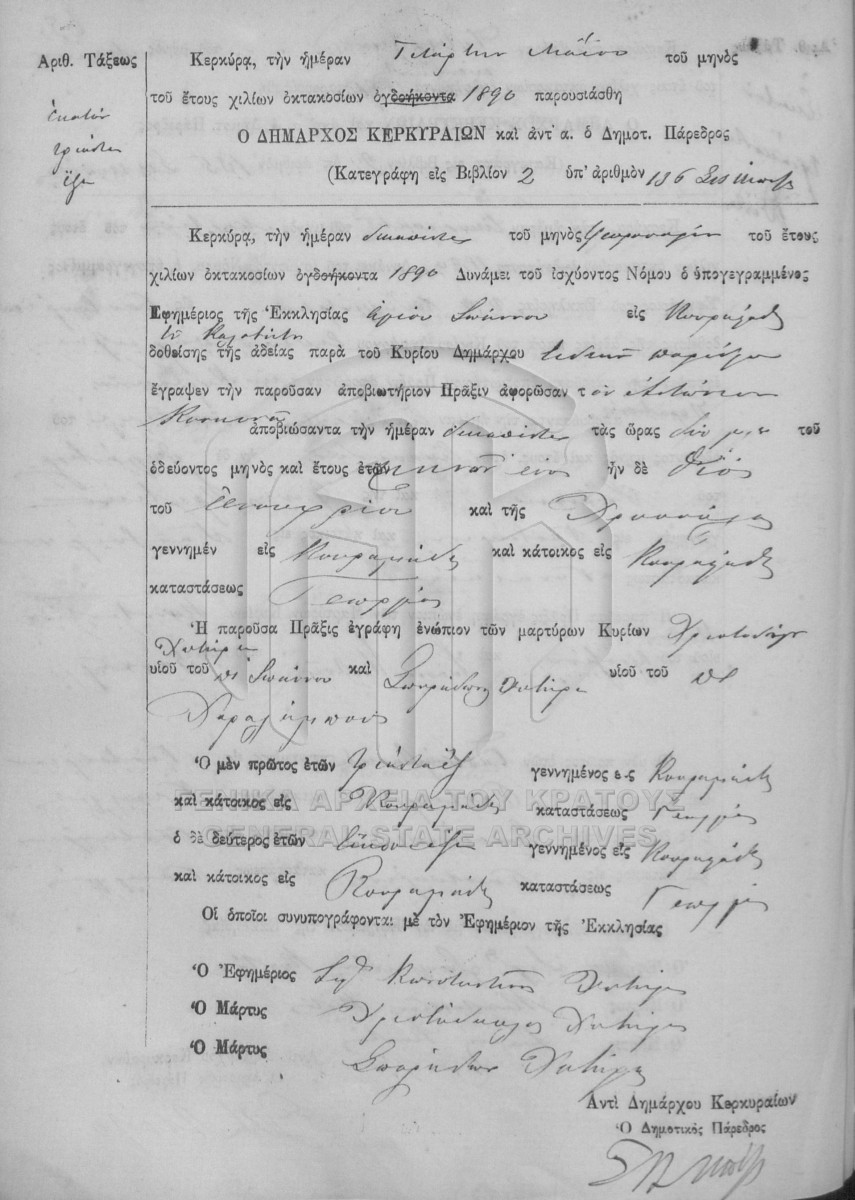 Ἀριθ. Τάξεως
ἑκατόν
τριάντα
ἕξ
Κερκύρᾳ, τὴν ἡμέραν Τετάρτην Μαΐου τοῦ μηνὸς
τοῦ ἔτους χιλίων ὀκτακοσίων ὀγδοήκοντα 1890 παρουσιάσθη
Ὁ ΔΗΜΑΡΧΟΣ ΚΕΡΚΥΡΑΙΩΝ καὶ ἀντ' α. ὁ Δημοτ. Πάρεδρος
(Κατεγράφη εἰς Βιβλίον 2 ὑπ' ἀριθμὸν 136
Κερκύρᾳ, τὴν ἡμέραν δεκαπέντε τοῦ μηνὸς Φεβρουαρίου τοῦ ἔτους
χιλίων ὀκτακοσίων ὀγδοήκοντα 1890 Δυνάμει τοῦ ἰσχύοντος Νόμου ὁ ὑπογεγραμμένος
Ἐφημέριος τῆς Ἐκκλησίας Ἁγίου Ἰωάννου εἰς Κουραμάδες
δοθείσης τῆς ἀδείας παρὰ τοῦ Κυρίου Δημάρχου εἰδικοῦ παρέδρου
ἔγραψεν τὴν παροῦσαν ἀποβιωτήριον Πρᾶξιν ἀφορῶσαν τὸν Ἀντώνιον
ἀποβιώσαντα τὴν ἡμέραν δεκαπέντε τὰς ὥρας δύο μ.μ. τοῦ
ὁδεύοντος μηνὸς καὶ ἔτους ἐτῶν ἑνός ἦν δὲ υἱός
τοῦ καὶ τῆς Χρυσούλας
γεννημέν εἰς Κουραμάδες καὶ κάτοικος εἰς Κουραμάδες
καταστάσεως Γεωργός
Ἡ παροῦσα Πρᾶξις ἐγράφη ἐνώπιον τῶν μαρτύρων Κυρίων Χριστοδούλου
Χυτήρη
υἱοῦ τοῦ πὲ Ἰωάννου καὶ Σπυρίδωνος Χυτήρη υἱοῦ τοῦ πὲ
Χαραλάμπους
Ὁ μὲν πρῶτος ἐτῶν τριάντα ἕξ γεννημένος εἰς Κουραμάδες
καὶ κάτοικος εἰς Κουραμάδες καταστάσεως Γεωργός
ὁ δὲ δεύτερος ἐτῶν εἴκοσι ἕξ γεννημένος εἰς Κουραμάδες
καὶ κάτοικος εἰς Κουραμάδες καταστάσεως Γεωργός
Οἱ ὁποῖοι συνυπογράφονται μὲ τὸν Ἐφημέριον τῆς Ἐκκλησίας
Ὁ Ἐφημέριος Κωνσταντῖνος Χυτήρης
Ὁ Μάρτυς Χριστόδουλος Χυτήρης
Ὁ Μάρτυς Σπυρίδων Χυτήρης
Ἀντὶ Δημάρχου Κερκυραίων
Ὁ Δημοτικὸς Πάρεδρος
ΓΕΝΙΚΑ ΑΡΧΕΙΑ ΤΟΥ ΚΡΑΤΟΥΣ
GENERAL STATE ARCHIVES